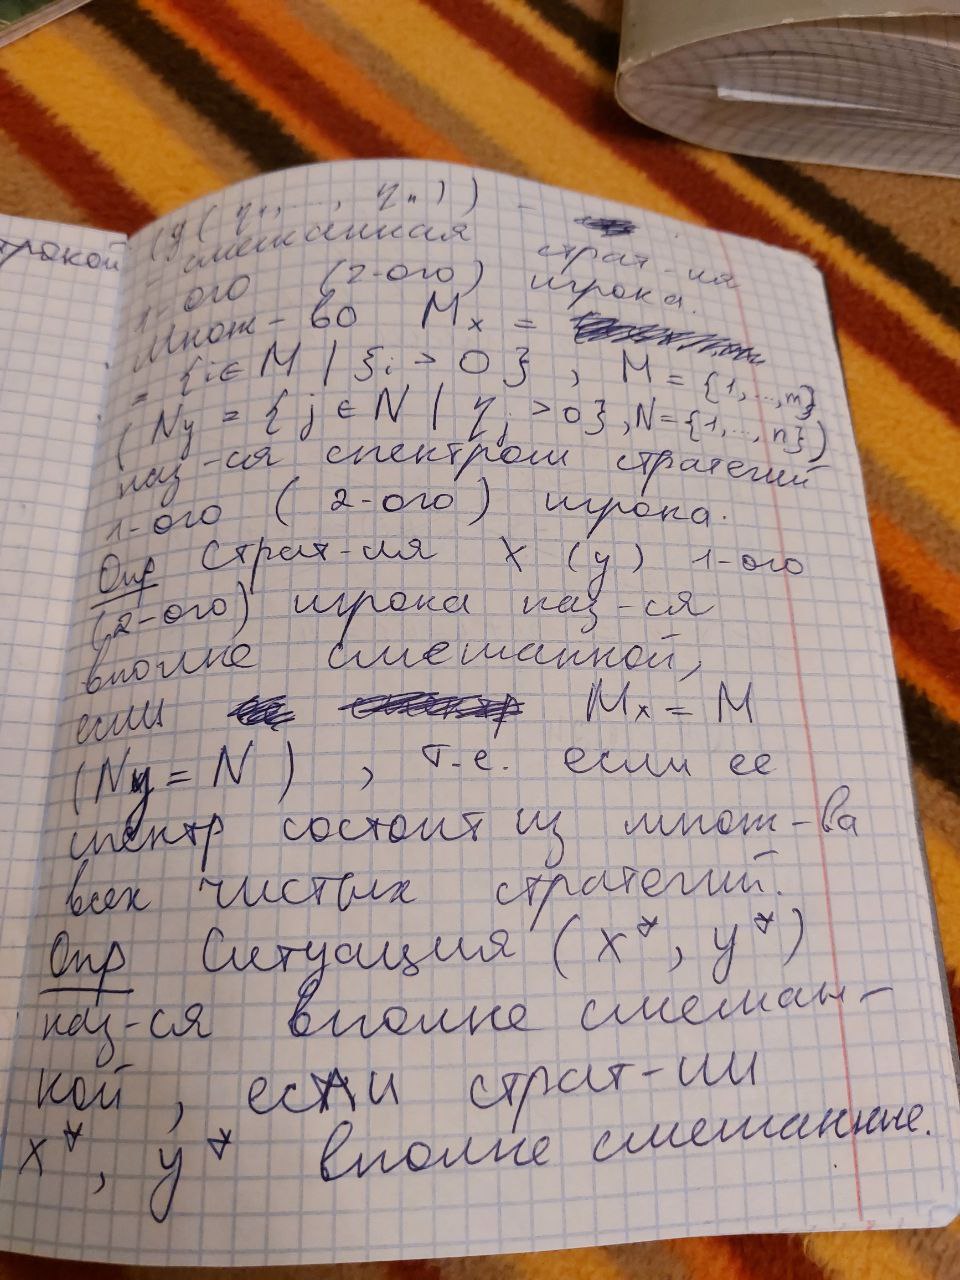 трокой
(y(η₁,..., ηₙ)) -
смешанная страт-ия
1-ого (2-ого) игрока.
Множ-во Mₓ =
= {i ∈ M | ξᵢ > 0}, M = {1,...,m}
(Nᵧ = {j ∈ N | ηⱼ > 0}, N = {1,..., n})
наз-ся спектром стратегий
1-ого (2-ого) игрока.
Опр Страт-ия x (y) 1-ого
(2-ого) игрока наз-ся
вполне смешанной,
если Mₓ = M
(Nᵧ = N), т.е. если ее
спектр состоит из множ-ва
всех чистых стратегий.
Опр Ситуация (x*, y*)
наз-ся вполне смешан-
ной, если страт-ии
x*, y* вполне смешанные.